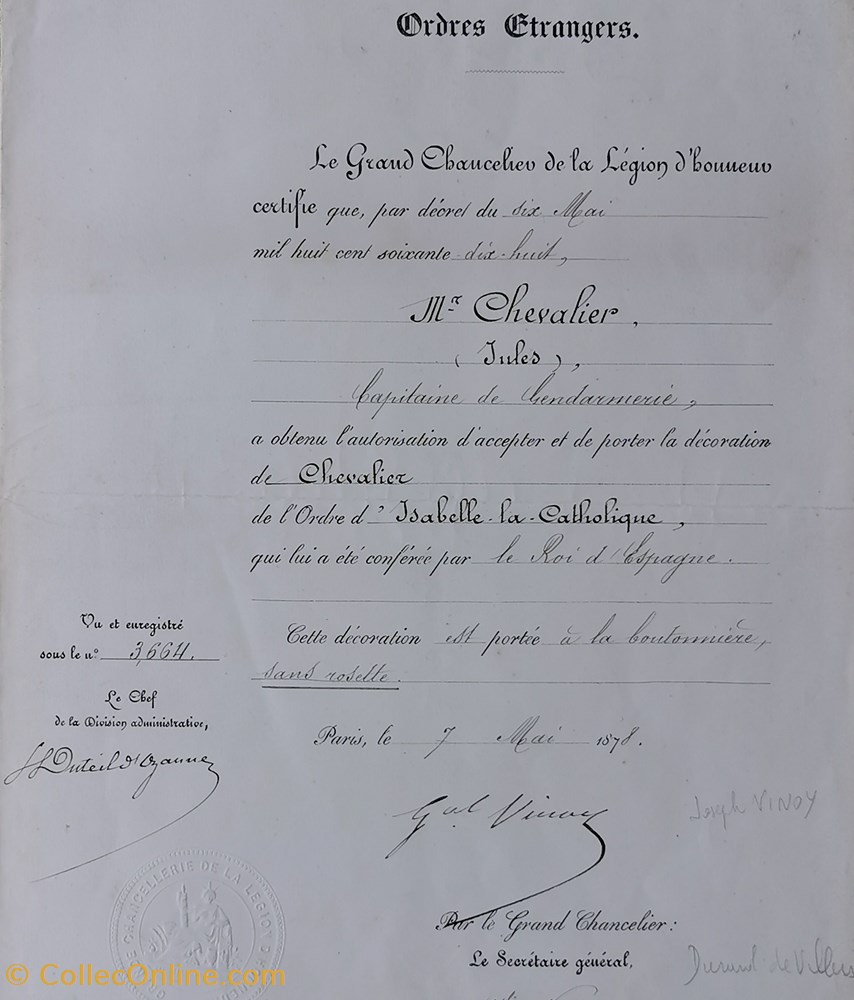 Ordres Etrangers.
Le Grand Chancelier de la Légion d'honneur
certifie que, par décret du six Mai
mil huit cent soixante dix-huit,
Mr. Chevalier,
(Jules),
Capitaine de Gendarmerie,
a obtenu l'autorisation d'accepter et de porter la décoration
de Chevalier
de l'Ordre d'Isabelle-la-Catholique,
qui lui a été conférée par le Roi d'Espagne.
Cette décoration est portée à la boutonnière,
sans rosette.
Vu et enregistré
sous le no. 3,664.
Le Chef
de la Division administrative,
Duteil d'Ozanne
Paris, le 7 Mai 1878.
Gal Vinoy
Joseph VINOY
Par le Grand Chancelier:
Le Secrétaire général,
Durand de Villers
CHANCELLERIE DE LA LÉGION D'
© CollecOnline.com